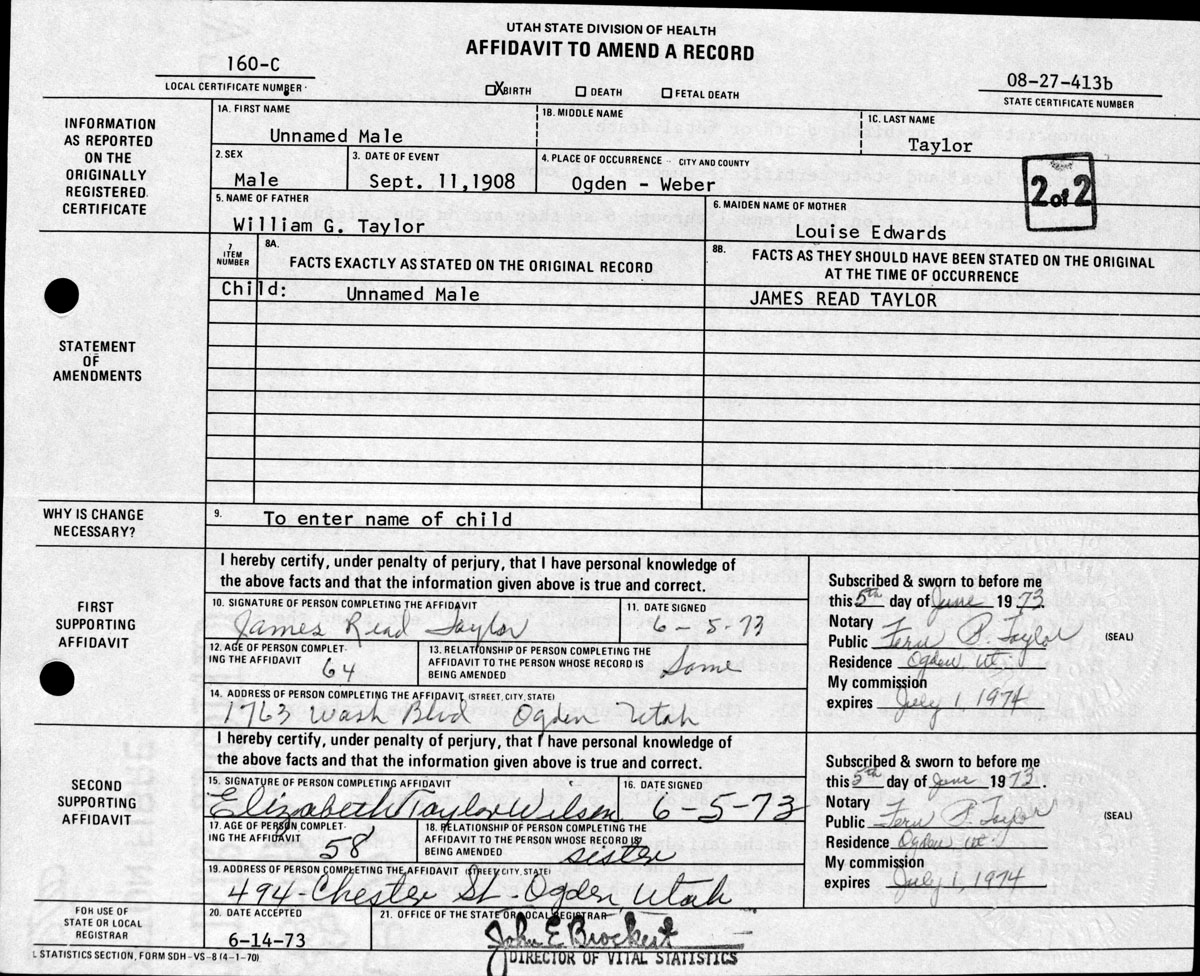 UTAH STATE DIVISION OF HEALTH
AFFIDAVIT TO AMEND A RECORD
160-C
LOCAL CERTIFICATE NUMBER
X BIRTH DEATH FETAL DEATH
08-27-413b
STATE CERTIFICATE NUMBER
INFORMATION AS REPORTED ON THE ORIGINALLY REGISTERED CERTIFICATE
1A. FIRST NAME 1B. MIDDLE NAME 1C. LAST NAME
Unnamed Male Taylor
2. SEX 3. DATE OF EVENT 4. PLACE OF OCCURRENCE - CITY AND COUNTY
Male Sept. 11,1908 Ogden - Weber
2 of 2
5. NAME OF FATHER 6. MAIDEN NAME OF MOTHER
William G. Taylor Louise Edwards
STATEMENT OF AMENDMENTS
7 ITEM NUMBER
8A. FACTS EXACTLY AS STATED ON THE ORIGINAL RECORD
8B. FACTS AS THEY SHOULD HAVE BEEN STATED ON THE ORIGINAL
AT THE TIME OF OCCURRENCE
Child: Unnamed Male JAMES READ TAYLOR
WHY IS CHANGE NECESSARY?
9. To enter name of child
FIRST SUPPORTING AFFIDAVIT
I hereby certify, under penalty of perjury, that I have personal knowledge of
the above facts and that the information given above is true and correct.
10. SIGNATURE OF PERSON COMPLETING THE AFFIDAVIT 11. DATE SIGNED
James Read Taylor 6-5-73
12. AGE OF PERSON COMPLET-
ING THE AFFIDAVIT 64
13. RELATIONSHIP OF PERSON COMPLETING THE
AFFIDAVIT TO THE PERSON WHOSE RECORD IS
BEING AMENDED Same
14. ADDRESS OF PERSON COMPLETING THE AFFIDAVIT (STREET, CITY, STATE)
1763 Wash Blvd Ogden Utah
Subscribed & sworn to before me
this 5th day of June 1973.
Notary
Public Fern P. Taylor (SEAL)
Residence Ogden Ut.
My commission
expires July 1, 1974
SECOND SUPPORTING AFFIDAVIT
I hereby certify, under penalty of perjury, that I have personal knowledge of
the above facts and that the information given above is true and correct.
15. SIGNATURE OF PERSON COMPLETING AFFIDAVIT 16. DATE SIGNED
Elizabeth Taylor Wilson 6-5-73
17. AGE OF PERSON COMPLET-
ING THE AFFIDAVIT 58
18. RELATIONSHIP OF PERSON COMPLETING THE
AFFIDAVIT TO THE PERSON WHOSE RECORD IS
BEING AMENDED sister
19. ADDRESS OF PERSON COMPLETING THE AFFIDAVIT (STREET, CITY, STATE)
494 Chester St. Ogden Utah
Subscribed & sworn to before me
this 5th day of June 1973.
Notary
Public Fern P. Taylor (SEAL)
Residence Ogden Ut.
My commission
expires July 1, 1974
FOR USE OF STATE OR LOCAL REGISTRAR
20. DATE ACCEPTED 21. OFFICE OF THE STATE OR LOCAL REGISTRAR
6-14-73 John E Brockert
DIRECTOR OF VITAL STATISTICS
L STATISTICS SECTION, FORM SDH-VS-8 (4-1-70)